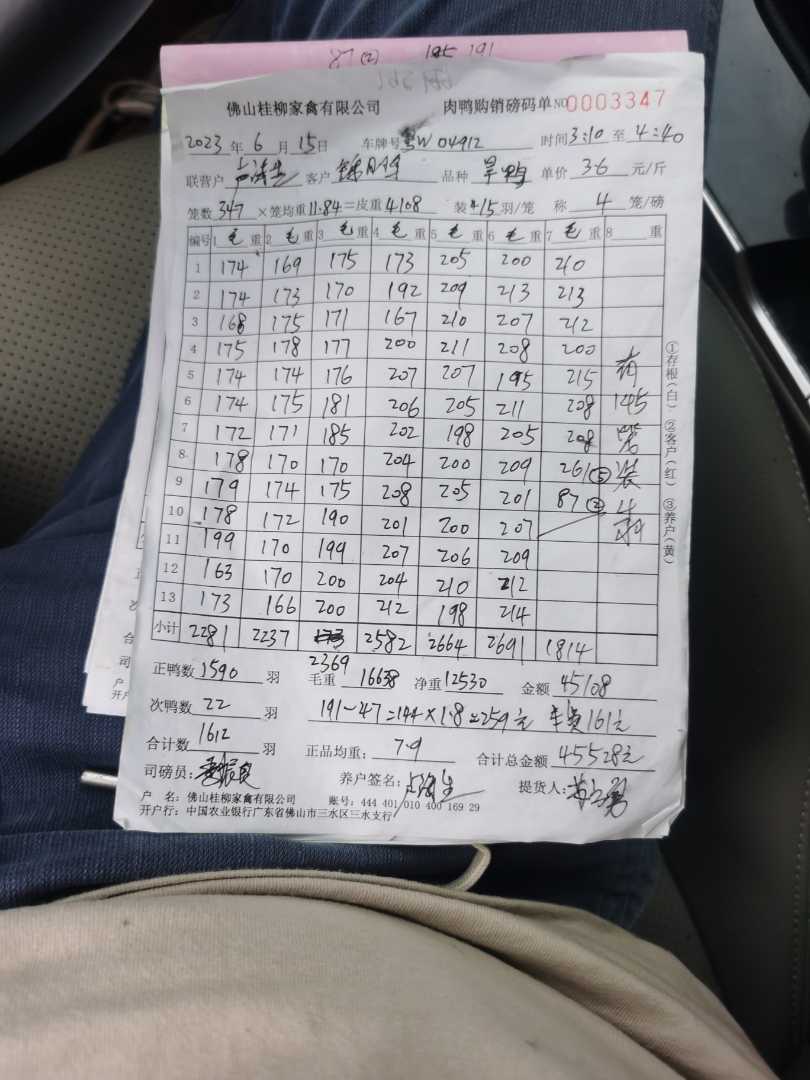 87(2) 195 191
佛山桂柳家禽有限公司 肉鸭购销磅码单 NO 0003347
2023 年 6 月 15 日 车牌号 粤W 04912 时间 3:10 至 4:40
联营户 客户 品种 旱鸭 单价 3.6 元/斤
笼数 347 ×笼均重 11.84 =皮重 4108 装 4-15 羽/笼 称 4 笼/磅
编号 1 毛 重 2 毛 重 3 毛 重 4 毛 重 5 毛 重 6 毛 重 7 毛 重 8 重
1 174 169 175 173 205 200 210
2 174 173 170 192 209 213 213
3 168 175 171 167 210 207 212
4 175 178 177 200 211 208 200
5 174 174 176 207 207 195 215
6 174 175 181 206 205 211 208
7 172 171 185 202 198 205 208
8 178 170 170 204 200 209 261③
9 179 174 175 208 205 201 87②
10 178 172 190 201 200 207
11 199 170 199 207 206 209
12 163 170 200 204 210 212
13 173 166 200 212 198 214
小计 2281 2237 2582 2664 2691 1814
2369
有145笼装
①存根(白) ②客户(红) ③养户(黄)
正鸭数 1590 羽 毛重 16638 净重 12530 金额 45108
次鸭数 22 羽 191-47=144×1.8=259元 车费161元
合计数 1612 羽 正品均重: 7.9 合计总金额 45528元
司磅员: 养户签名: 提货人:
户 名: 佛山桂柳家禽有限公司 账号: 444 401 010 400 169 29
开户行: 中国农业银行广东省佛山市三水区三水支行